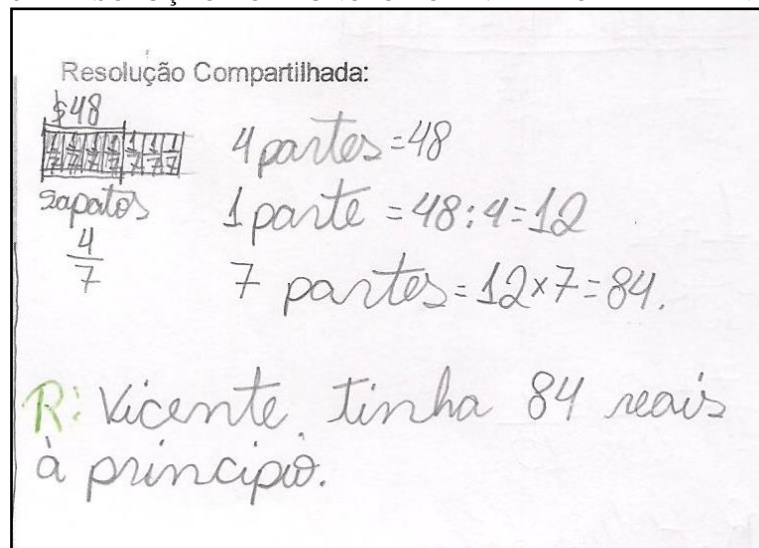 Resolução Compartilhada:
$48
1/7 1/7 1/7 1/7 1/7 1/7 1/7
sapatos
4/7
4 partes = 48
1 parte = 48 : 4 = 12
7 partes = 12 x 7 = 84.
R: Vicente, tinha 84 reais
à princípio.